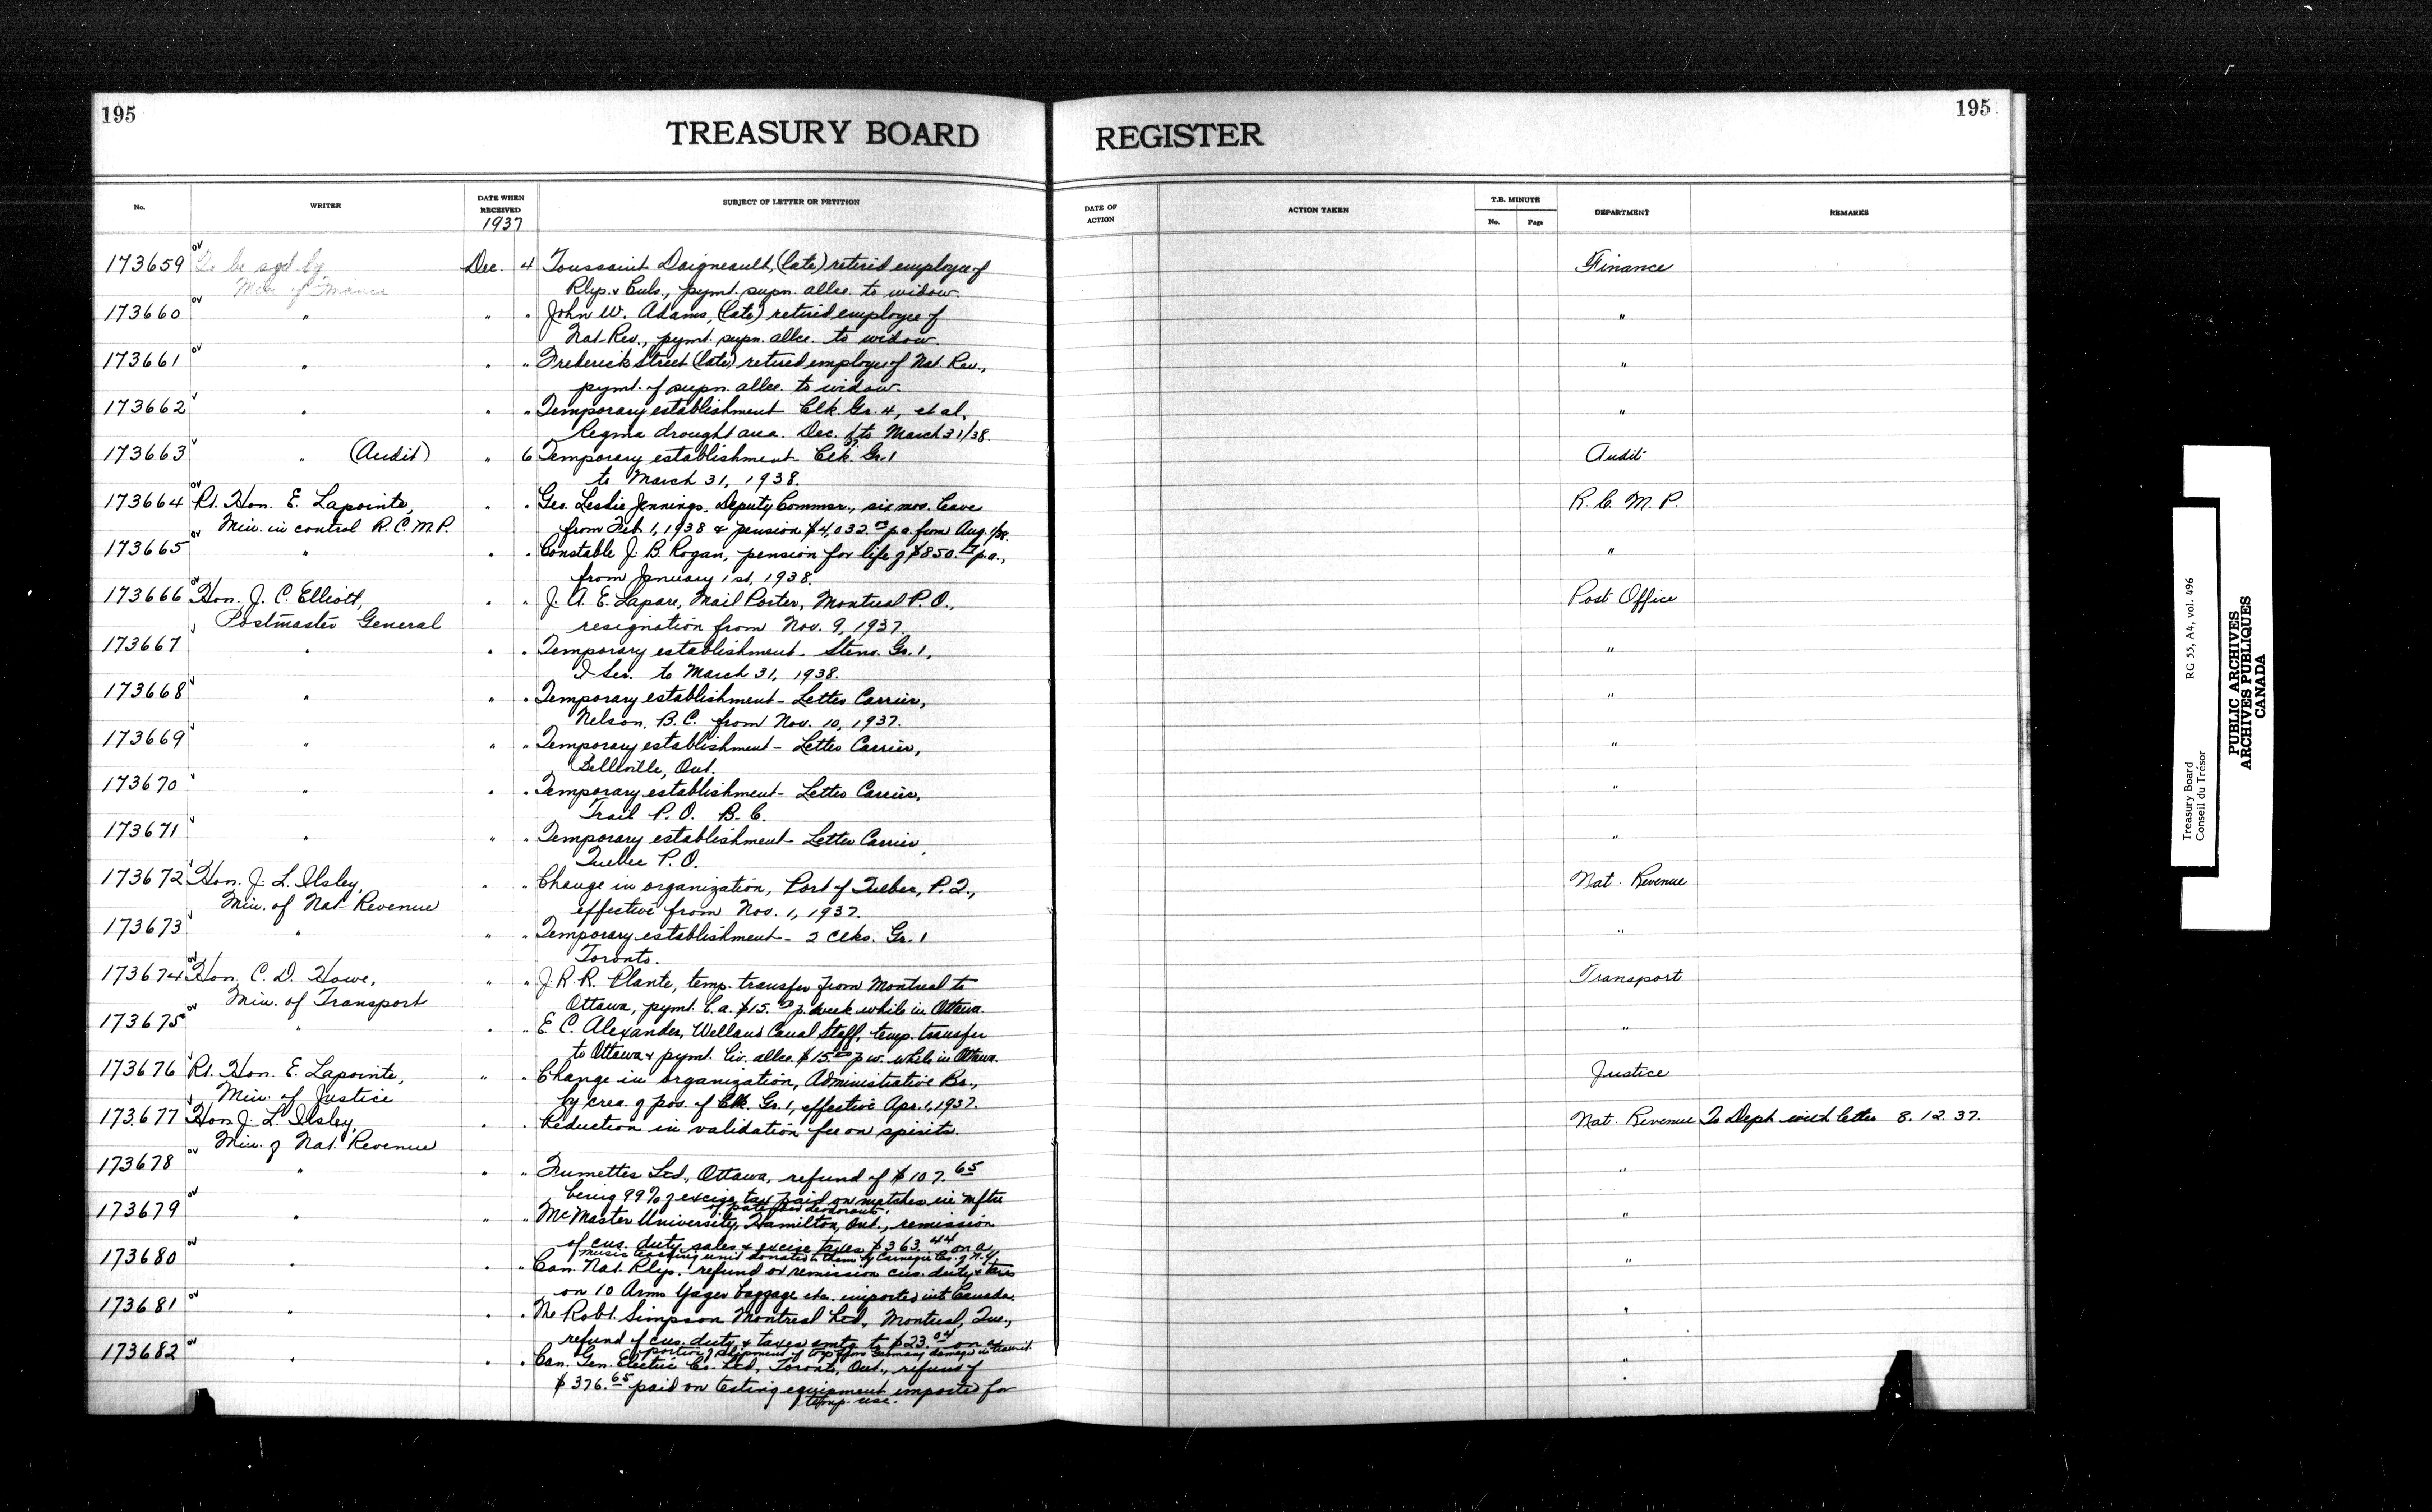 195
195
TREASURY BOARD REGISTER
No.
WRITER
DATE WHEN RECEIVED
1937
SUBJECT OF LETTER OR PETITION
DATE OF ACTION
ACTION TAKEN
T.B. MINUTE
No. Page
DEPARTMENT
REMARKS
173659 ov To be sgd by Dec. 4 Toussaint Daigneault, (late) retired employee of Finance
Min of Finance Rlys. & Cnls., pymt. supn. allce. to widow.
173660 ov " " " John W. Adams, (late) retired employee of "
Nat. Rev., pymt. supn. allce. to widow.
173661 ov " " " Frederick Street (late) retired employee of Nat. Rev., "
pymt. of supn. allce. to widow.
173662 v " " " Temporary establishment Clk. Gr. 4, et al, "
Regina drought area. Dec. to March 31/38.
173663 v " (Audit) " 6 Temporary establishment Clk. Gr. 1 Audit
to March 31, 1938.
173664 ov Rt. Hon. E. Lapointe, " " Geo. Leslie Jennings, Deputy Commsr., six mos. leave R. C. M. P.
Min. in control R.C.M.P. from Feb. 1, 1938 & pension $4,032.00 p.a. from Aug. 1/38.
173665 ov " " " Constable J. B. Rogan, pension for life of $850. p.a., "
from January 1st, 1938.
173666 ov Hon. J. C. Elliott, " " J. A. E. Lapare, Mail Porter, Montreal P. O., Post Office
Postmaster General resignation from Nov. 9, 1937.
173667 v " " " Temporary establishment - Steno. Gr. 1, "
to March 31, 1938.
173668 v " " " Temporary establishment - Letter Carrier, "
Nelson, B.C. from Nov. 10, 1937.
173669 v " " " Temporary establishment - Letter Carrier, "
Belleville, Ont.
173670 v " " " Temporary establishment - Letter Carrier, "
Trail P. O. B. C.
173671 v " " " Temporary establishment - Letter Carrier, "
Quebec P. O.
173672 v Hon. J. L. Ilsley, " " Change in organization, Port of Quebec, P. Q., Nat. Revenue
Min. of Nat Revenue effective from Nov. 1, 1937.
173673 v " " " Temporary establishment - 2 Clks. Gr. 1 "
Toronto.
173674 ov Hon. C. D. Howe, " " J. R. R. Plante, temp. transfer from Montreal to Transport
Min. of Transport Ottawa, pymt. l.a. $15.00 p. week while in Ottawa.
173675 ov " " " E. C. Alexander, Welland Canal Staff, temp. transfer "
to Ottawa & pymt. liv. allce. $15.00 p w. while in Ottawa.
173676 v Rt. Hon. E. Lapointe, " " Change in organization, Administrative Br., Justice
Min. of Justice by crea. of pos. of Clk. Gr. 1, effective Apr. 1, 1937.
173677 v Hon. J. L. Ilsley, " " Reduction in validation fee on spirits. Nat. Revenue To Dept with letter 8.12.37.
Min. of Nat. Revenue
173678 ov " " " Fumettes Ltd., Ottawa, refund of $107.65 "
being 99% of excise tax paid on matches in mftr
of patented deodorants.
173679 ov " " " McMaster University, Hamilton, Ont., remission "
of cus. duty, sales & excise taxes $363.44 on a
music teaching unit donated to them by Carnegie Co. of N.Y.
173680 ov " " " Can. Nat. Rlys. refund or remission cus. duty & taxes "
on 10 Arms Yager baggage etc. imported into Canada.
173681 ov " " " The Robt. Simpson Montreal Ltd., Montreal, Que., "
refund of cus. duty & taxes amtg. to $23.04 on a
portion of shipment of toys from Germany damaged in transit.
173682 ov " " " Can. Gen. Electric Co. Ltd., Toronto, Ont., refund of "
$376.65 paid on testing equipment imported for "
temp. use.
Treasury Board RG 55, A4, vol. 496
Conseil du Trésor
PUBLIC ARCHIVES
ARCHIVES PUBLIQUES
CANADA